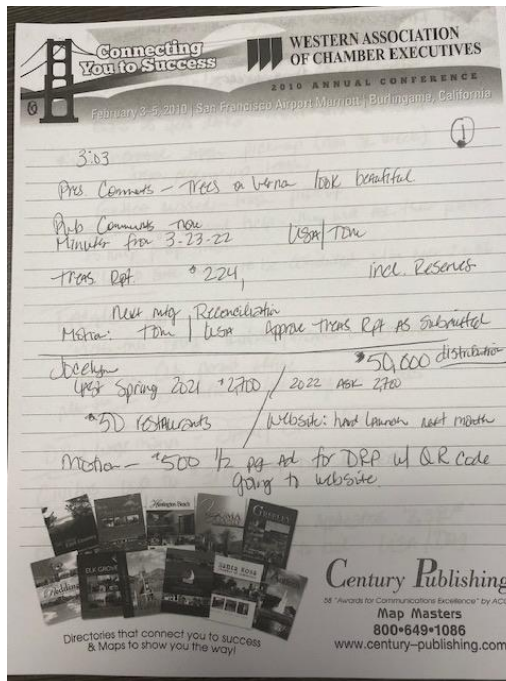 Connecting
You to Success
WESTERN ASSOCIATION
OF CHAMBER EXECUTIVES
2010 ANNUAL CONFERENCE
February 3-5, 2010 | San Francisco Airport Marriott | Burlingame, California
1
3:03
Pres. Comments - Trees on Verna look beautiful
Pub Comments none
Minutes from 3-23-22 LISA/TOM
Treas Rpt. $224, incl. Reserves
Next mtg Reconciliation
Motion: Tom | LISA Approve Treas Rpt As Submitted
Jocelyn $50,000 distribution
Last Spring 2021 $2,700 / 2022 ASK 2,700
50 restaurants / Website: hard launch next month
Motion - $500 1/2 pg Ad for DRP w/ QR Code
going to website.
Huntington Beach
GREELEY
ELK GROVE
SANTA ROSA
Redding
Directories that connect you to success
& Maps to show you the way!
Century Publishing
58 "Awards for Communications Excellence" by
Map Masters
800•649•1086
www.century-publishing.com